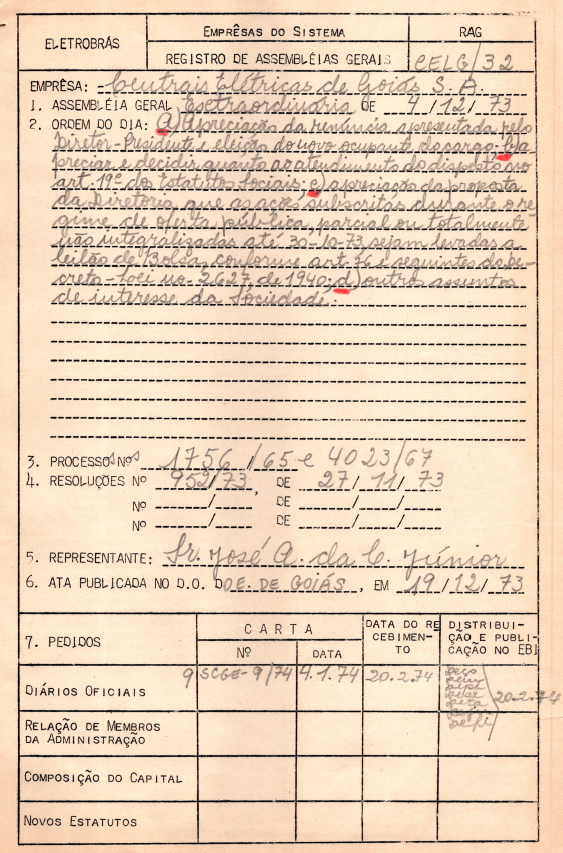 ELETROBRÁS
EMPRÊSAS DO SISTEMA
REGISTRO DE ASSEMBLÉIAS GERAIS
RAG
CELG/32
EMPRÊSA: Centrais Elétricas de Goiás S. A.
1. ASSEMBLÉIA GERAL Esctraordinária DE 4/12/73
2. ORDEM DO DIA: a) Apreciação da renúncia apresentada pelo
Diretor-Presidente e eleição do novo ocupante do cargo; b) a
preciar e decidir quanto ao atendimento do disposto no
art. 19º dos Estatutos Sociais; c) apreciação da proposta
da Diretoria, que as ações subscritas durante o re
gime de oferta pública, parcial ou totalmente
não integralizadas até 30-10-73 sejam levadas a
leilão de Bolsa, conforme art. 76 e seguintes do De-
creto-Lei no 2627, de 1940; d) outros assuntos
de interesse da Sociedade.
3. PROCESSOS NºS 1756/65 e 4023/67
4. RESOLUÇÕES Nº 952/73, DE 27/11/73
Nº / DE / /
Nº / DE / /
5. REPRESENTANTE: Sr. José A. da C. Júnior
6. ATA PUBLICADA NO D.O. DOE. DE GOIÁS, EM 19/12/73
7. PEDIDOS
CARTA
Nº
DATA
DATA DO RE
CEBIMEN-
TO
DISTRIBUI-
ÇÃO E PUBLI-
CAÇÃO NO EBI
DIÁRIOS OFICIAIS
9 SCGE-9/74
4.1.74
20.2.74
20.2.74
RELAÇÃO DE MEMBROS
DA ADMINISTRAÇÃO
COMPOSIÇÃO DO CAPITAL
NOVOS ESTATUTOS